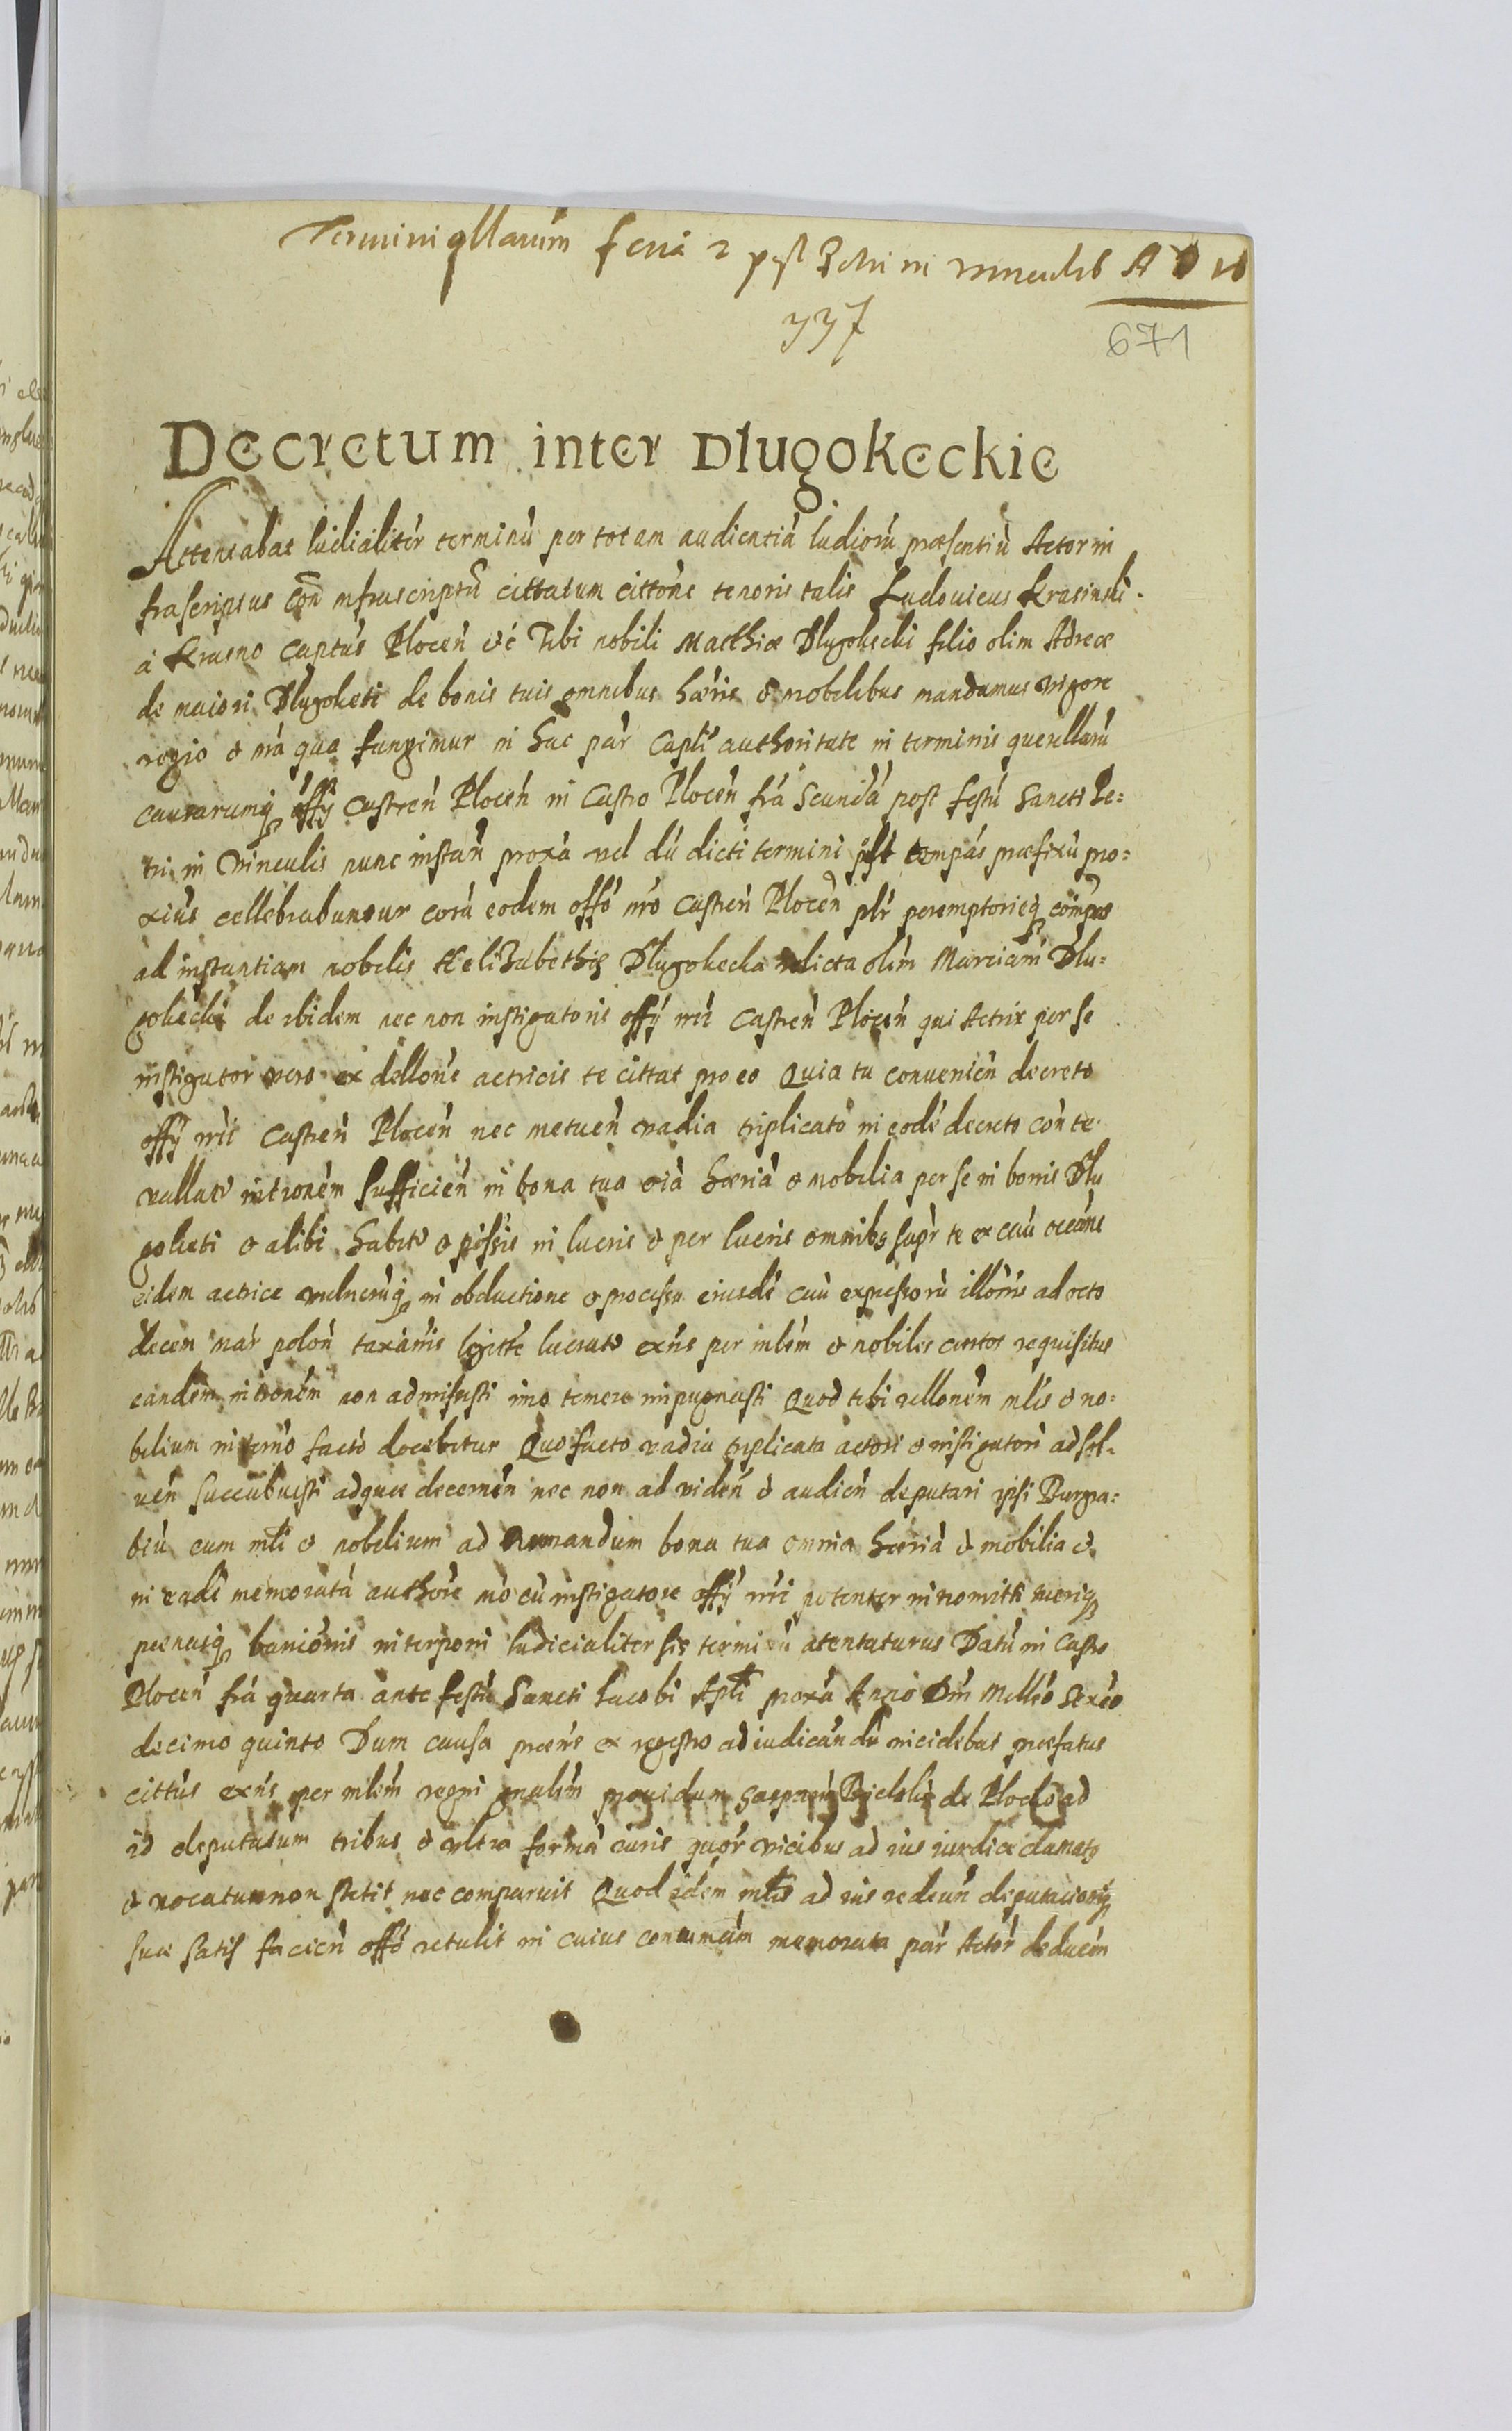 Termini qllarum feria 2 post Petri in vinculis A D 16
337
671
Decretum inter Dlugokeckie
Attentabat Iudicialiter terminu per totam audientia Iudioru praesentiu Actor in
frascriptus con infrascriptu cittatum cittone tenoris talis Ludovicus Krasinski
a Krasno Captus Plocen etc Tibi nobili Matthiae Dlugokecki filio olim Adreae
de maiori Dlugoketi de bonis tuis omnibus haeris et mobilibus mandamus vigore
regio et nra qua fungimur in hac par Capti authoritate in terminis querellaru
causarumq offy Castren Plocen in Castro Plocen fra Scunda post festu Sancti Pe=
tri in Vinculis nunc instan proxa vel du dicti termini post tempus praefixu pro=
xius cellebrabuntur cora eodem offo nro Castren Plocen plr peremptorieq compas
ad instantiam nobilis Helizabethis Dlugokecka relicta olim Marciani Dlu=
gokecki de ibidem nec non instigatoris offy nri Castren Plocen qui Actrix per se
instigator vero ex dellone actricis te cittat pro eo Quia tu convenien decreto
offy nri Castren Plocen nec metuen vadia triplicato in eode decreto con te
vallato intronem sufficien in bona tua oia haeria et mobilia per se in bonis Dlu
goketi et alibi habito et possis in lucris et per lucris omnibs supr te ex cau occone
eidem actrice vulneruq in obductione et processu eiusde cau expressoru illoris ad octo
decem mar polon taxamis legitte lucrato exns per inlem et nobiles certos requisitus
eandem intronem non admisisti imo temere impugnasti Quod tibi rellonem mlis et no=
bilium in termo facto docebitur Quo facto vadia triplicata actori et instigatori ad sol-
uen succubuisti adquae decernen nec non ad viden et audien deputari ipsi Burgra=
biu cum mli et nobilium ad bona tua omnia haeria et mobilia et
in eade memorata authore mo cu instigatore offy nri potenter intromitti
poenasq banionis interponi Iudicialiter sis terminu atentaturus Datu in Castro
Plocen fra quarta ante festu Sancti Iacobi Apli proxa Anno Dni Millo Sexeo
decimo quinto Dum causa praens ex regestro ad iudicandu incidebat praefatus
cittus exns per mlem regni gnalem providum Gasparu Bielski de Plocko ad
id deputatum tribus et ultra forma curis quor vicibus ad ius iurdice clamato
et vocatum non stetit nec comparuit Quod idem mlis ad ius redeun deputacionq
sua satis facien offo retulit in cuius conumcim memorata par Actor deducem